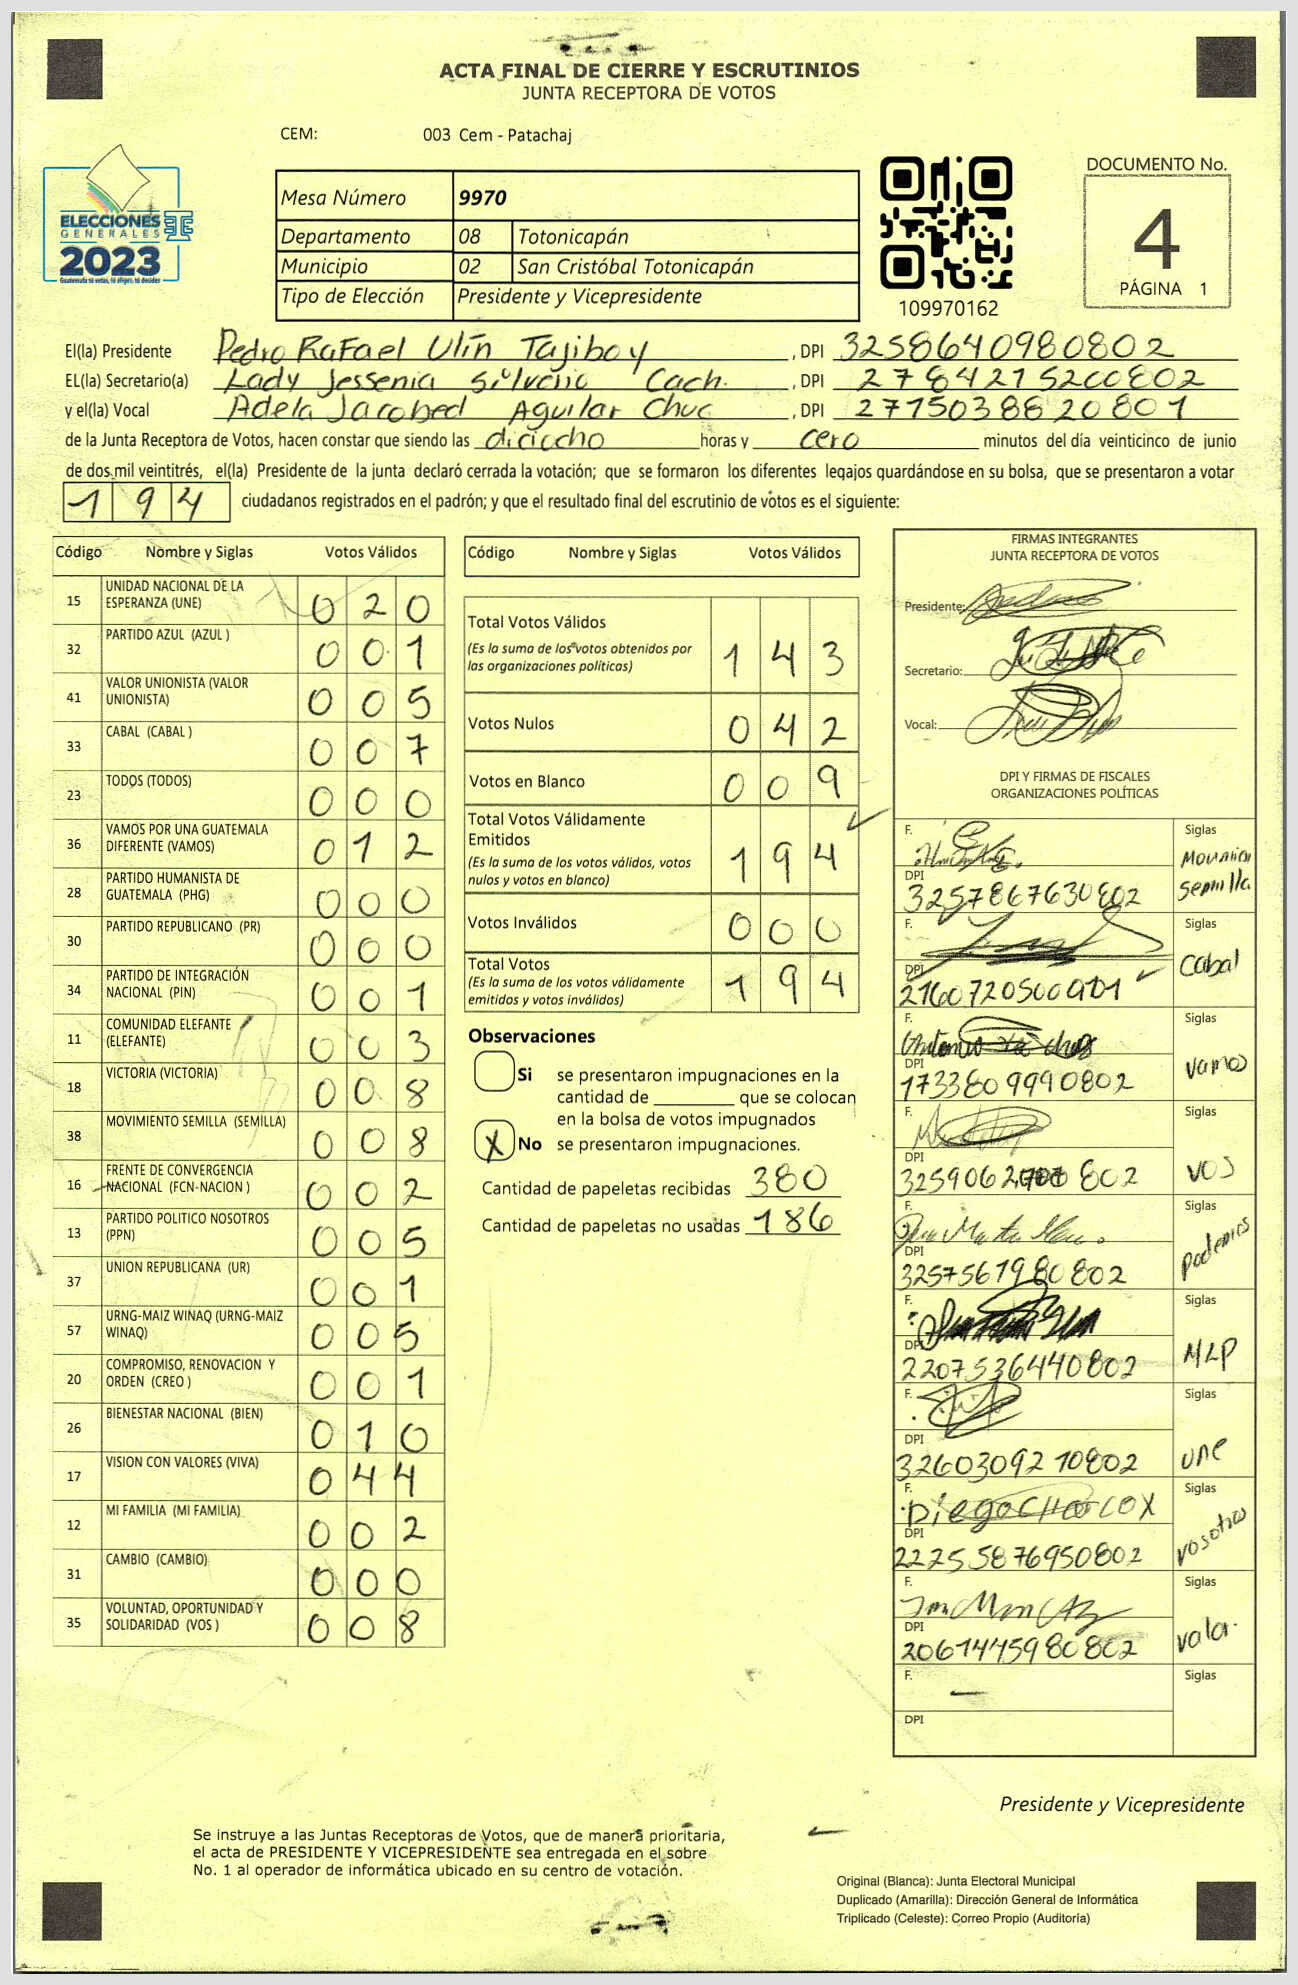 ACTA FINAL DE CIERRE Y ESCRUTINIOS
JUNTA RECEPTORA DE VOTOS
CEM: 003 Cem - Patachaj
ELECCIONES
GENERALES
2023
Mesa Número 9970
Departamento 08 Totonicapán
Municipio 02 San Cristóbal Totonicapán
Tipo de Elección Presidente y Vicepresidente
109970162
DOCUMENTO No.
4
PÁGINA 1
El(la) Presidente Pedro Rafael Ulín Tajiboy, DPI 3258640980802
EL(la) Secretario(a) Lady Jessenia Cach., DPI 2784215200802
y el(la) Vocal Adela Jacobed Aguilar Chuc, DPI 2771503886 20801
de la Junta Receptora de Votos, hacen constar que siendo las diciocho horas y cero minutos del día veinticinco de junio
de dos mil veintitrés, el(la) Presidente de la junta declaró cerrada la votación; que se formaron los diferentes legajos guardándose en su bolsa, que se presentaron a votar
194 ciudadanos registrados en el padrón; y que el resultado final del escrutinio de votos es el siguiente:
Código Nombre y Siglas Votos Válidos
15 UNIDAD NACIONAL DE LA ESPERANZA (UNE) 020
32 PARTIDO AZUL (AZUL ) 001
41 VALOR UNIONISTA (VALOR UNIONISTA) 005
33 CABAL (CABAL ) 007
23 TODOS (TODOS) 000
36 VAMOS POR UNA GUATEMALA DIFERENTE (VAMOS) 012
28 PARTIDO HUMANISTA DE GUATEMALA (PHG) 000
30 PARTIDO REPUBLICANO (PR) 000
34 PARTIDO DE INTEGRACIÓN NACIONAL (PIN) 001
11 COMUNIDAD ELEFANTE (ELEFANTE) 003
18 VICTORIA (VICTORIA) 008
38 MOVIMIENTO SEMILLA (SEMILLA) 008
16 FRENTE DE CONVERGENCIA NACIONAL (FCN-NACION ) 002
13 PARTIDO POLITICO NOSOTROS (PPN) 005
37 UNION REPUBLICANA (UR) 001
57 URNG-MAIZ WINAQ (URNG-MAIZ WINAQ) 005
20 COMPROMISO, RENOVACION Y ORDEN (CREO ) 001
26 BIENESTAR NACIONAL (BIEN) 010
17 VISION CON VALORES (VIVA) 044
12 MI FAMILIA (MI FAMILIA) 002
31 CAMBIO (CAMBIO) 000
35 VOLUNTAD, OPORTUNIDAD Y SOLIDARIDAD (VOS ) 008
Código Nombre y Siglas Votos Válidos
Total Votos Válidos 143
(Es la suma de los votos obtenidos por
las organizaciones políticas)
Votos Nulos 042
Votos en Blanco 009
Total Votos Válidamente
Emitidos 194
(Es la suma de los votos válidos, votos
nulos y votos en blanco)
Votos Inválidos 000
Total Votos 194
(Es la suma de los votos válidamente
emitidos y votos inválidos)
Observaciones
Si se presentaron impugnaciones en la
cantidad de ________ que se colocan
en la bolsa de votos impugnados
X No se presentaron impugnaciones.
Cantidad de papeletas recibidas 380
Cantidad de papeletas no usadas 186
FIRMAS INTEGRANTES
JUNTA RECEPTORA DE VOTOS
Presidente:
Secretario:
Vocal:
DPI Y FIRMAS DE FISCALES
ORGANIZACIONES POLÍTICAS
F. Siglas
DPI 3257867630802 Semilla
F. Siglas
DPI Cabal
F. Siglas
DPI 1733809990802 vamos
F. Siglas
DPI VOS
F. Siglas
DPI 3257561980802 podemos
F. Siglas
DPI 2207536440802 MLP
F. Siglas
DPI 3260309210802 une
F. Siglas
DPI 22255876950802 vosotros
F. Siglas
DPI 2061445980802 valor.
F. Siglas
DPI
Presidente y Vicepresidente
Se instruye a las Juntas Receptoras de Votos, que de manera prioritaria,
el acta de PRESIDENTE Y VICEPRESIDENTE sea entregada en el sobre
No. 1 al operador de informática ubicado en su centro de votación.
Original (Blanca): Junta Electoral Municipal
Duplicado (Amarilla): Dirección General de Informática
Triplicado (Celeste): Correo Propio (Auditoría)